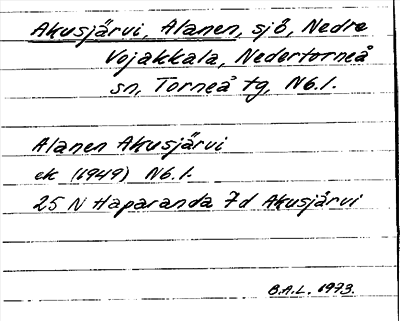 Akusjärvi, Alanen, sjö, Nedre
Vojakkala, Nedertorneå
sn, Torneå tg, N6.l.
Alanen Akusjärvi
ek (1949) N6.l.
25 N Haparanda 7d Akusjärvi
B.A.L. 1973.